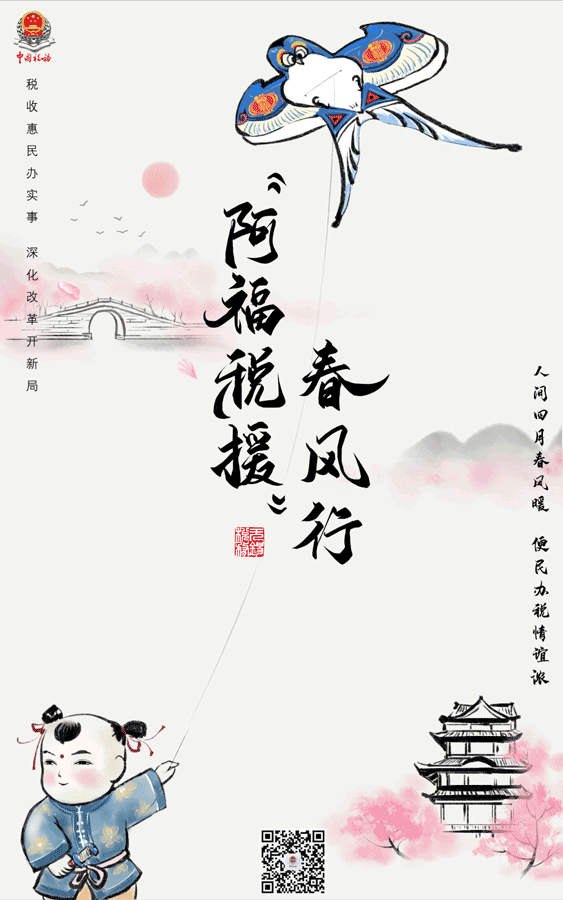 中国税务
税收惠民办实事 深化改革开新局
“阿福税援”
春风行
人间四月春风暖 便民办税情谊浓